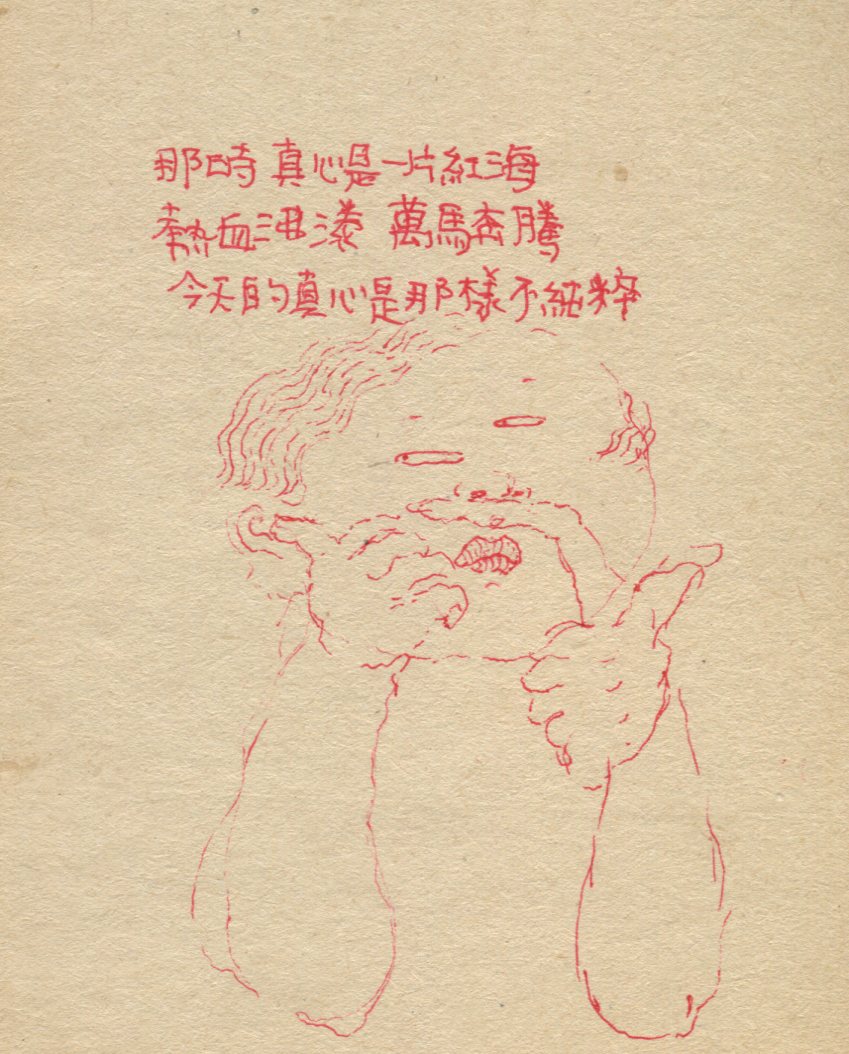 那時 真心是一片紅海
熱血漾 萬馬奔騰
今天的真心是那樣不純粹